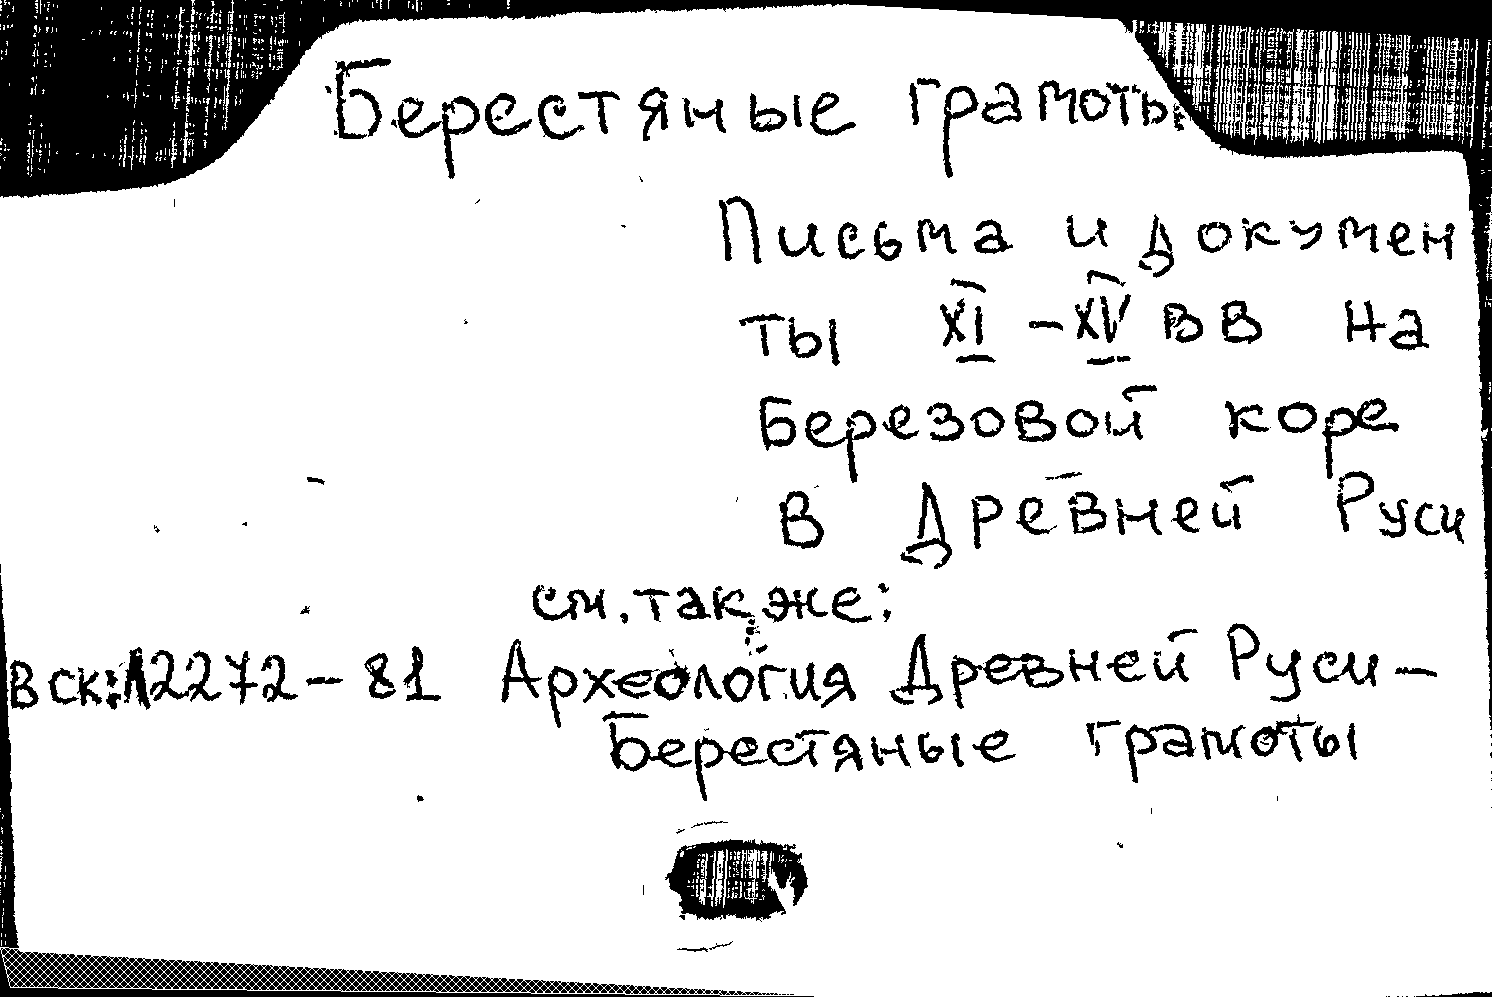 Берестяные грамоты
Письма и докумен
ты XI – XV вв на
березовой коре
в Древней Руси
см. также:
Вск: Л2272-81 Археология Древней Руси –
Берестяные грамоты